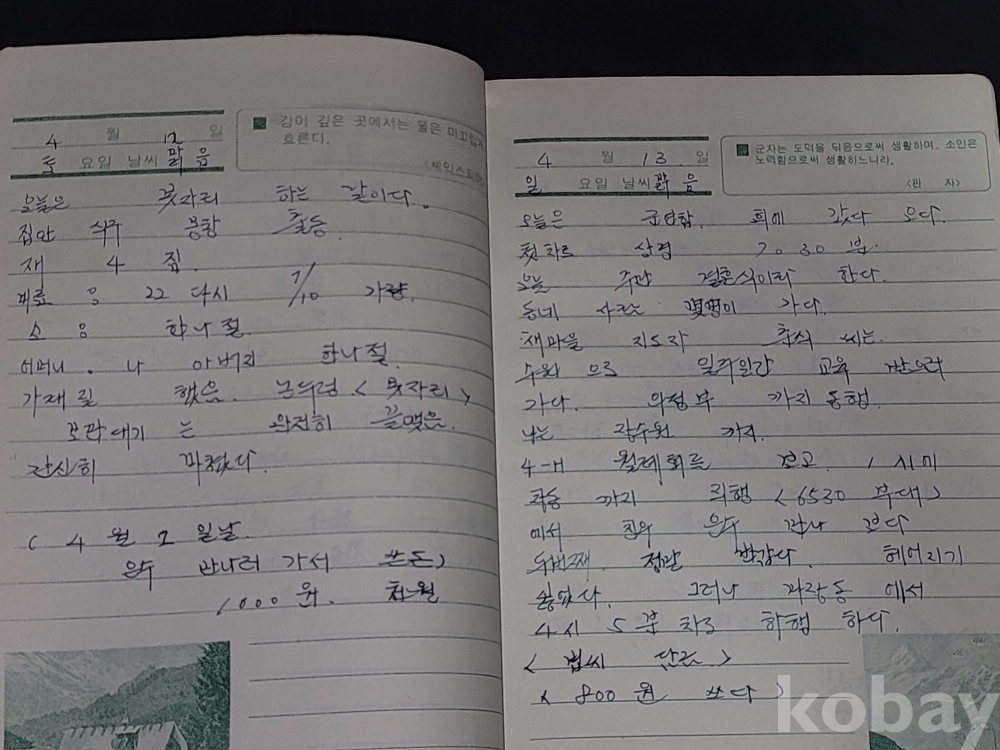 4 월 12 일
토 요일 날씨 맑음
강이 깊은 곳에서는 물은 미끄럽게
흐른다.
<셰익스피어
오늘은 못자리 하는 날이다.
집안 식구 몽창 출동
재 4 짚
비료 : 22 다시 7/10 가량.
소 : 하나절
어머니. 나 아버지 하나절.
가래질 했음. 논두렁 <못자리>
모판대기 는 완전히 끝맺음.
간신히 마쳤다.
( 4 월 2 일날
은수 만나러 가서 쓴돈)
1000 원. 천원
4 월 13 일
일 요일 날씨 맑음
군자는 도덕을 닦음으로써 생활하며, 소인은
노력함으로써 생활하느니라.
<관 자>
오늘은 군연합. 회에 갔다 오다.
첫차로 상경 7.30 분.
오늘 주관 결혼식이라 한다.
동네 사람 몇명이 가다.
새마을 지도자 춘식 씨는
수원 으로 일주일간 교육 받으러
가다. 의정부 까지 동행.
나는 까지.
4-H 월례회를 보고. 1 시에
까지 <6530 부대>
에서 친우 은수 만나 보다
두번째. 정말 반갑다. 헤어지기
싫었다. 그러나 에서
4시 5 분 차로 하행 하다.
<볍씨 >
< 800 원 쓰다>
kobay